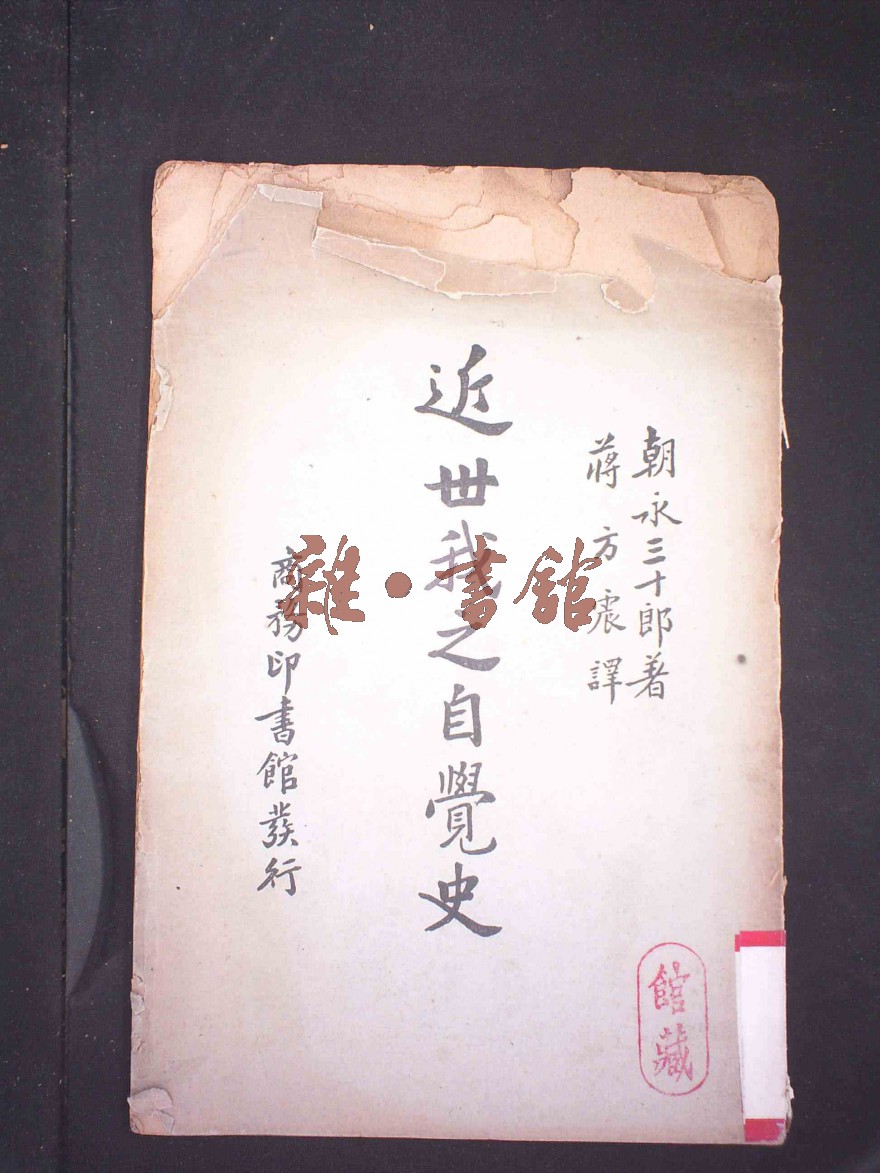 朝永三十郎著
蔣方震譯
近世我之自覺史
商務印書館發行
雜·書館
館藏